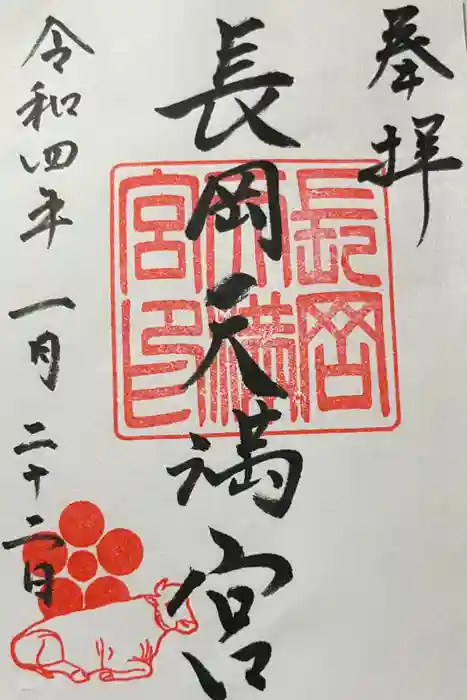 奉拝
長岡天満宮
長岡天満宮印
令和四年 一月 二十二日